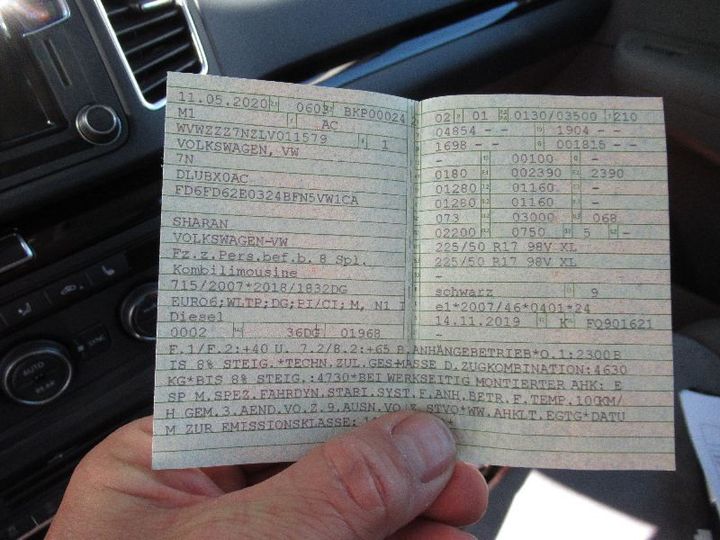 11.05.2020 0603 BKP00024
M1 AC
WVWZZZ7NZLV011579 1
VOLKSWAGEN, VW
7N
DLUBX0AC
FD6FD62E0324BFN5VW1CA
SHARAN
VOLKSWAGEN-VW
Fz.z.Pers.bef.b. 8 Spl.
Kombilimousine
715/2007*2018/1832DG
EURO6;WLTP;DG;PI/CI; M, N1 I
Diesel
0002 36DG 01968
02 01 0130/03500 210
04854 - - 1904 - -
1698 - - 001815 - -
- 00100 -
0180 002390 2390
01280 01160 -
01280 01160 -
073 03000 068
02200 0750 5 -
225/50 R17 98V XL
225/50 R17 98V XL
-
schwarz 9
e1*2007/46*0401*24
14.11.2019 K FQ901621
-
F.1/F.2:+40 U. 7.2/8.2:+65 B.ANHÄNGEBETRIEB*O.1:2300B
IS 8% STEIG.*TECHN.ZUL.GES-MASSE D.ZUGKOMBINATION:4630
KG*BIS 8% STEIG.:4730*BEI WERKSEITIG MONTIERTER AHK: E
SP M.SPEZ.FAHRDYN.STABI.SYST.F.ANH.BETR.F.TEMP.100KM/
H GEM.3.AEND.VO.Z.9.AUSN.VO.Z.STVO*WW.AHKLT.EGTG*DATU
M ZUR EMISSIONSKLASSE:
AUTO
SYNC
AUTO